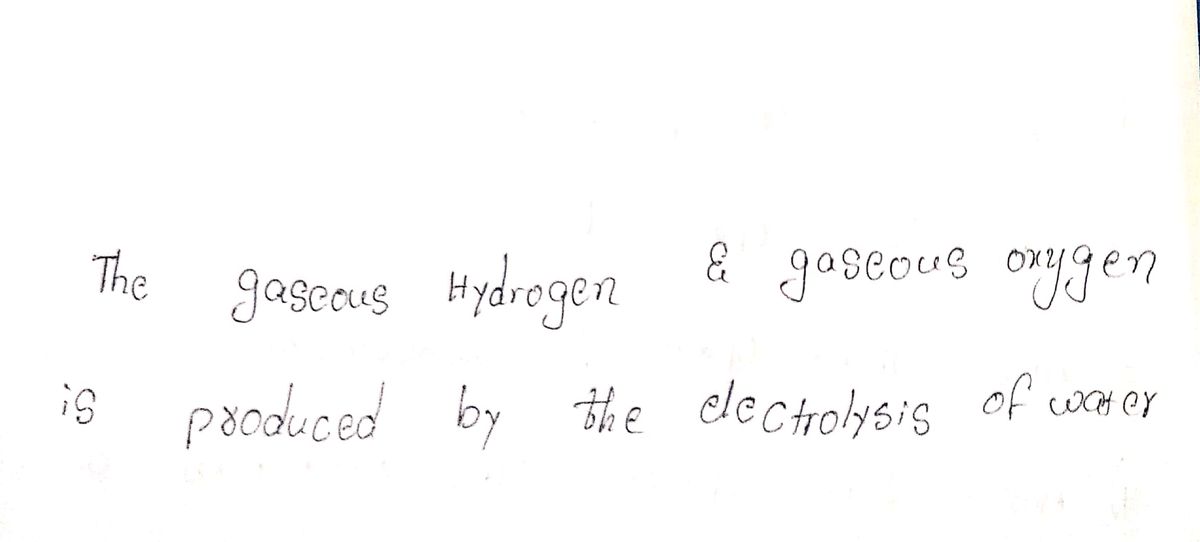 The gaseous Hydrogen & gaseous oxygen
is produced by the electrolysis of water